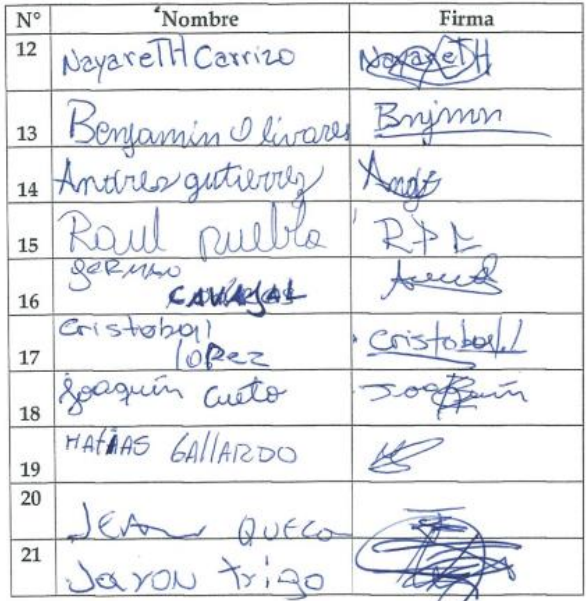 N° Nombre Firma
12 NayareTH Carrizo NayareTH
13 Benjamin Olivares Bnjmn
14 Andres gutierrez
15 Raul puebla
16 GERMAN
CAVAJAL
17 Cristobal
lopez Cristobal
18 Joaquín Cueto Joaquín
19 MATIAS GAllARDO
20 JEAN
21 Jayron trigo